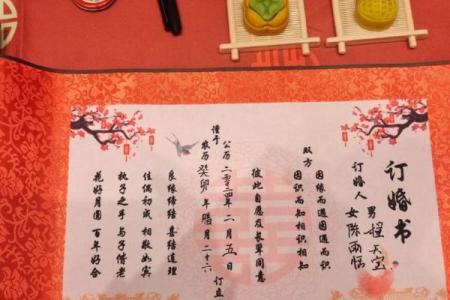 订婚书
订婚人
男 天宝
女 陈雨
双方
因缘而遇因遇而识
因识而知相识相知
彼此自愿及长辈同意
谨于
公历二〇二四年二月五日
农历癸卯年腊月二十六
订立
良缘缔结 喜结连理
佳偶初成 相敬如宾
执子之手 与子偕老
花好月圆 百年好合